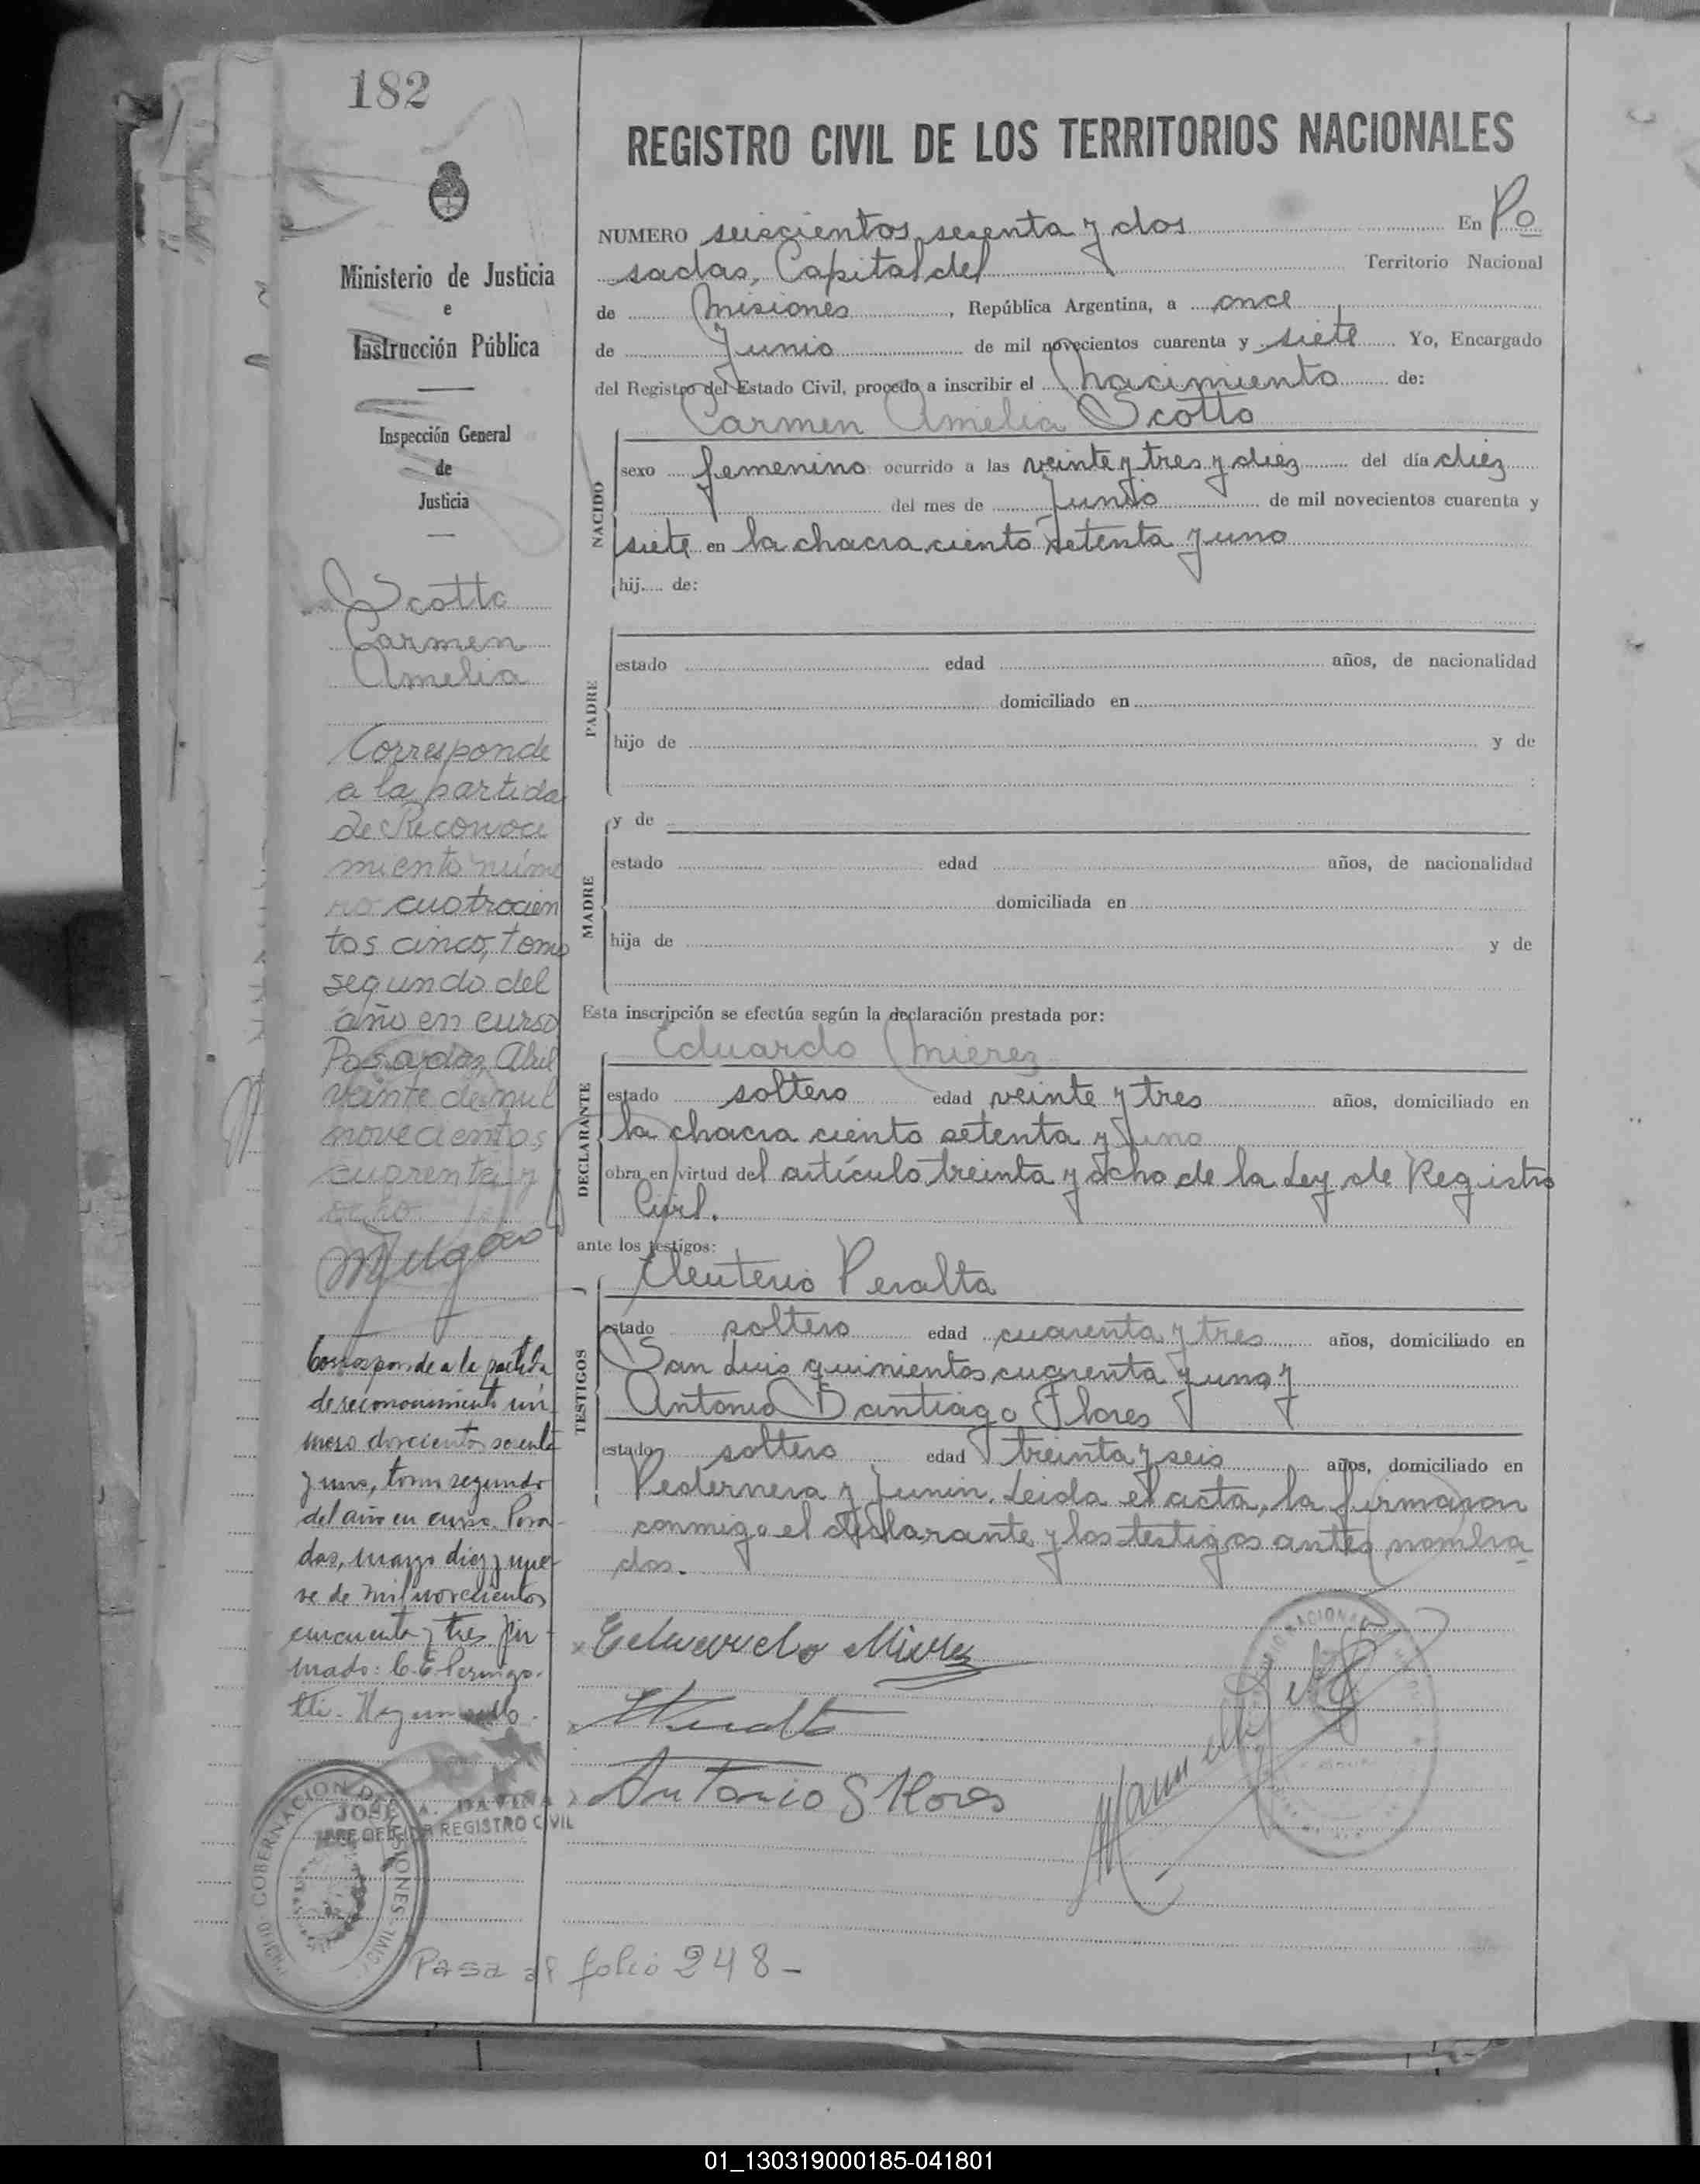 182
Ministerio de Justicia
e
Instrucción Pública
Inspección General
de
Justicia
Scotto
Carmen
Amelia
Corresponde
a la partida
de Reconoci
miento núme
ro cuatrocien
tos cinco, tomo
segundo del
año en curso
Posadas, Abril
veinte de mil
novecientos
cuarenta y
ocho
Corresponde a la partida
de reconocimiento nú
mero doscientos sesenta
y uno, tomo segundo
del año en curso. Posa-
das, marzo diez y nue-
ve de mil novecientos
cincuenta y tres fir
mado: C. E.
GOBERNACION DE MISIONES
JOSE A.
JEFE OFICINA REGISTRO CIVIL
REGISTRO CIVIL DE LOS TERRITORIOS NACIONALES
NUMERO seiscientos sesenta y dos En Po
sadas, Capital del Territorio Nacional
de Misiones, República Argentina, a once
de Junio de mil novecientos cuarenta y siete Yo, Encargado
del Registro del Estado Civil, procedo a inscribir el nacimiento de:
Carmen Amelia Scotto
NACIDO
sexo femenino ocurrido a las veinte y tres y diez del día diez
del mes de Junio de mil novecientos cuarenta y
siete en la chacra ciento setenta y uno
hij.... de:
PADRE
estado edad años, de nacionalidad
domiciliado en
hijo de y de
MADRE
y de
estado edad años, de nacionalidad
domiciliada en
hija de y de
Esta inscripción se efectúa según la declaración prestada por:
Eduardo Mierez
DECLARANTE
estado soltero edad veinte y tres años, domiciliado en
la chacra ciento setenta y uno
obra en virtud del artículo treinta y ocho de la Ley de Registro
Civil.
ante los testigos:
TESTIGOS
Eleuterio Peralta
estado soltero edad cuarenta y tres años, domiciliado en
San Luis quinientos cuarenta y uno y
Antonio Santiago Flores
estado soltero edad treinta y seis años, domiciliado en
Pedernera y Junin. Leida el acta, la firmaron
conmigo el declarante y los testigos antes nombra
dos.
Eduardo Mierez
Antonio S Flores
Pasa al folio 248-
01_130319000185-041801